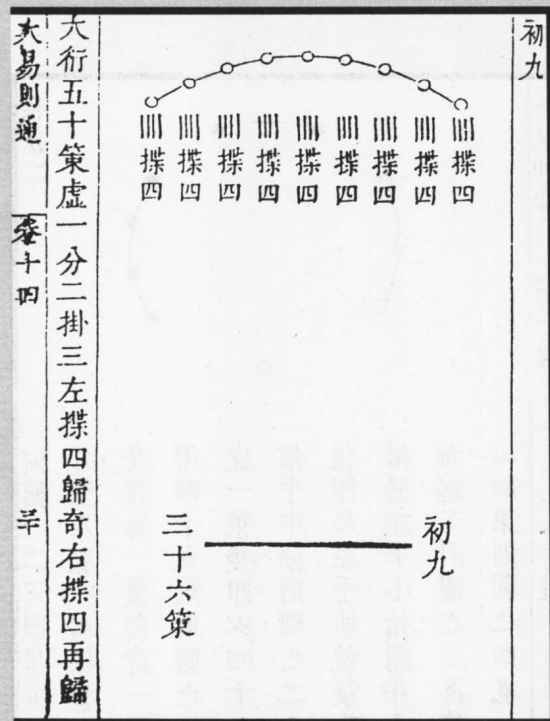 初九
揲四
揲四
揲四
揲四
揲四
揲四
揲四
揲四
揲四
初九
三十六策
大衍五十策虛一分二掛三左揲四歸奇右揲四再歸
大易則通
卷十四